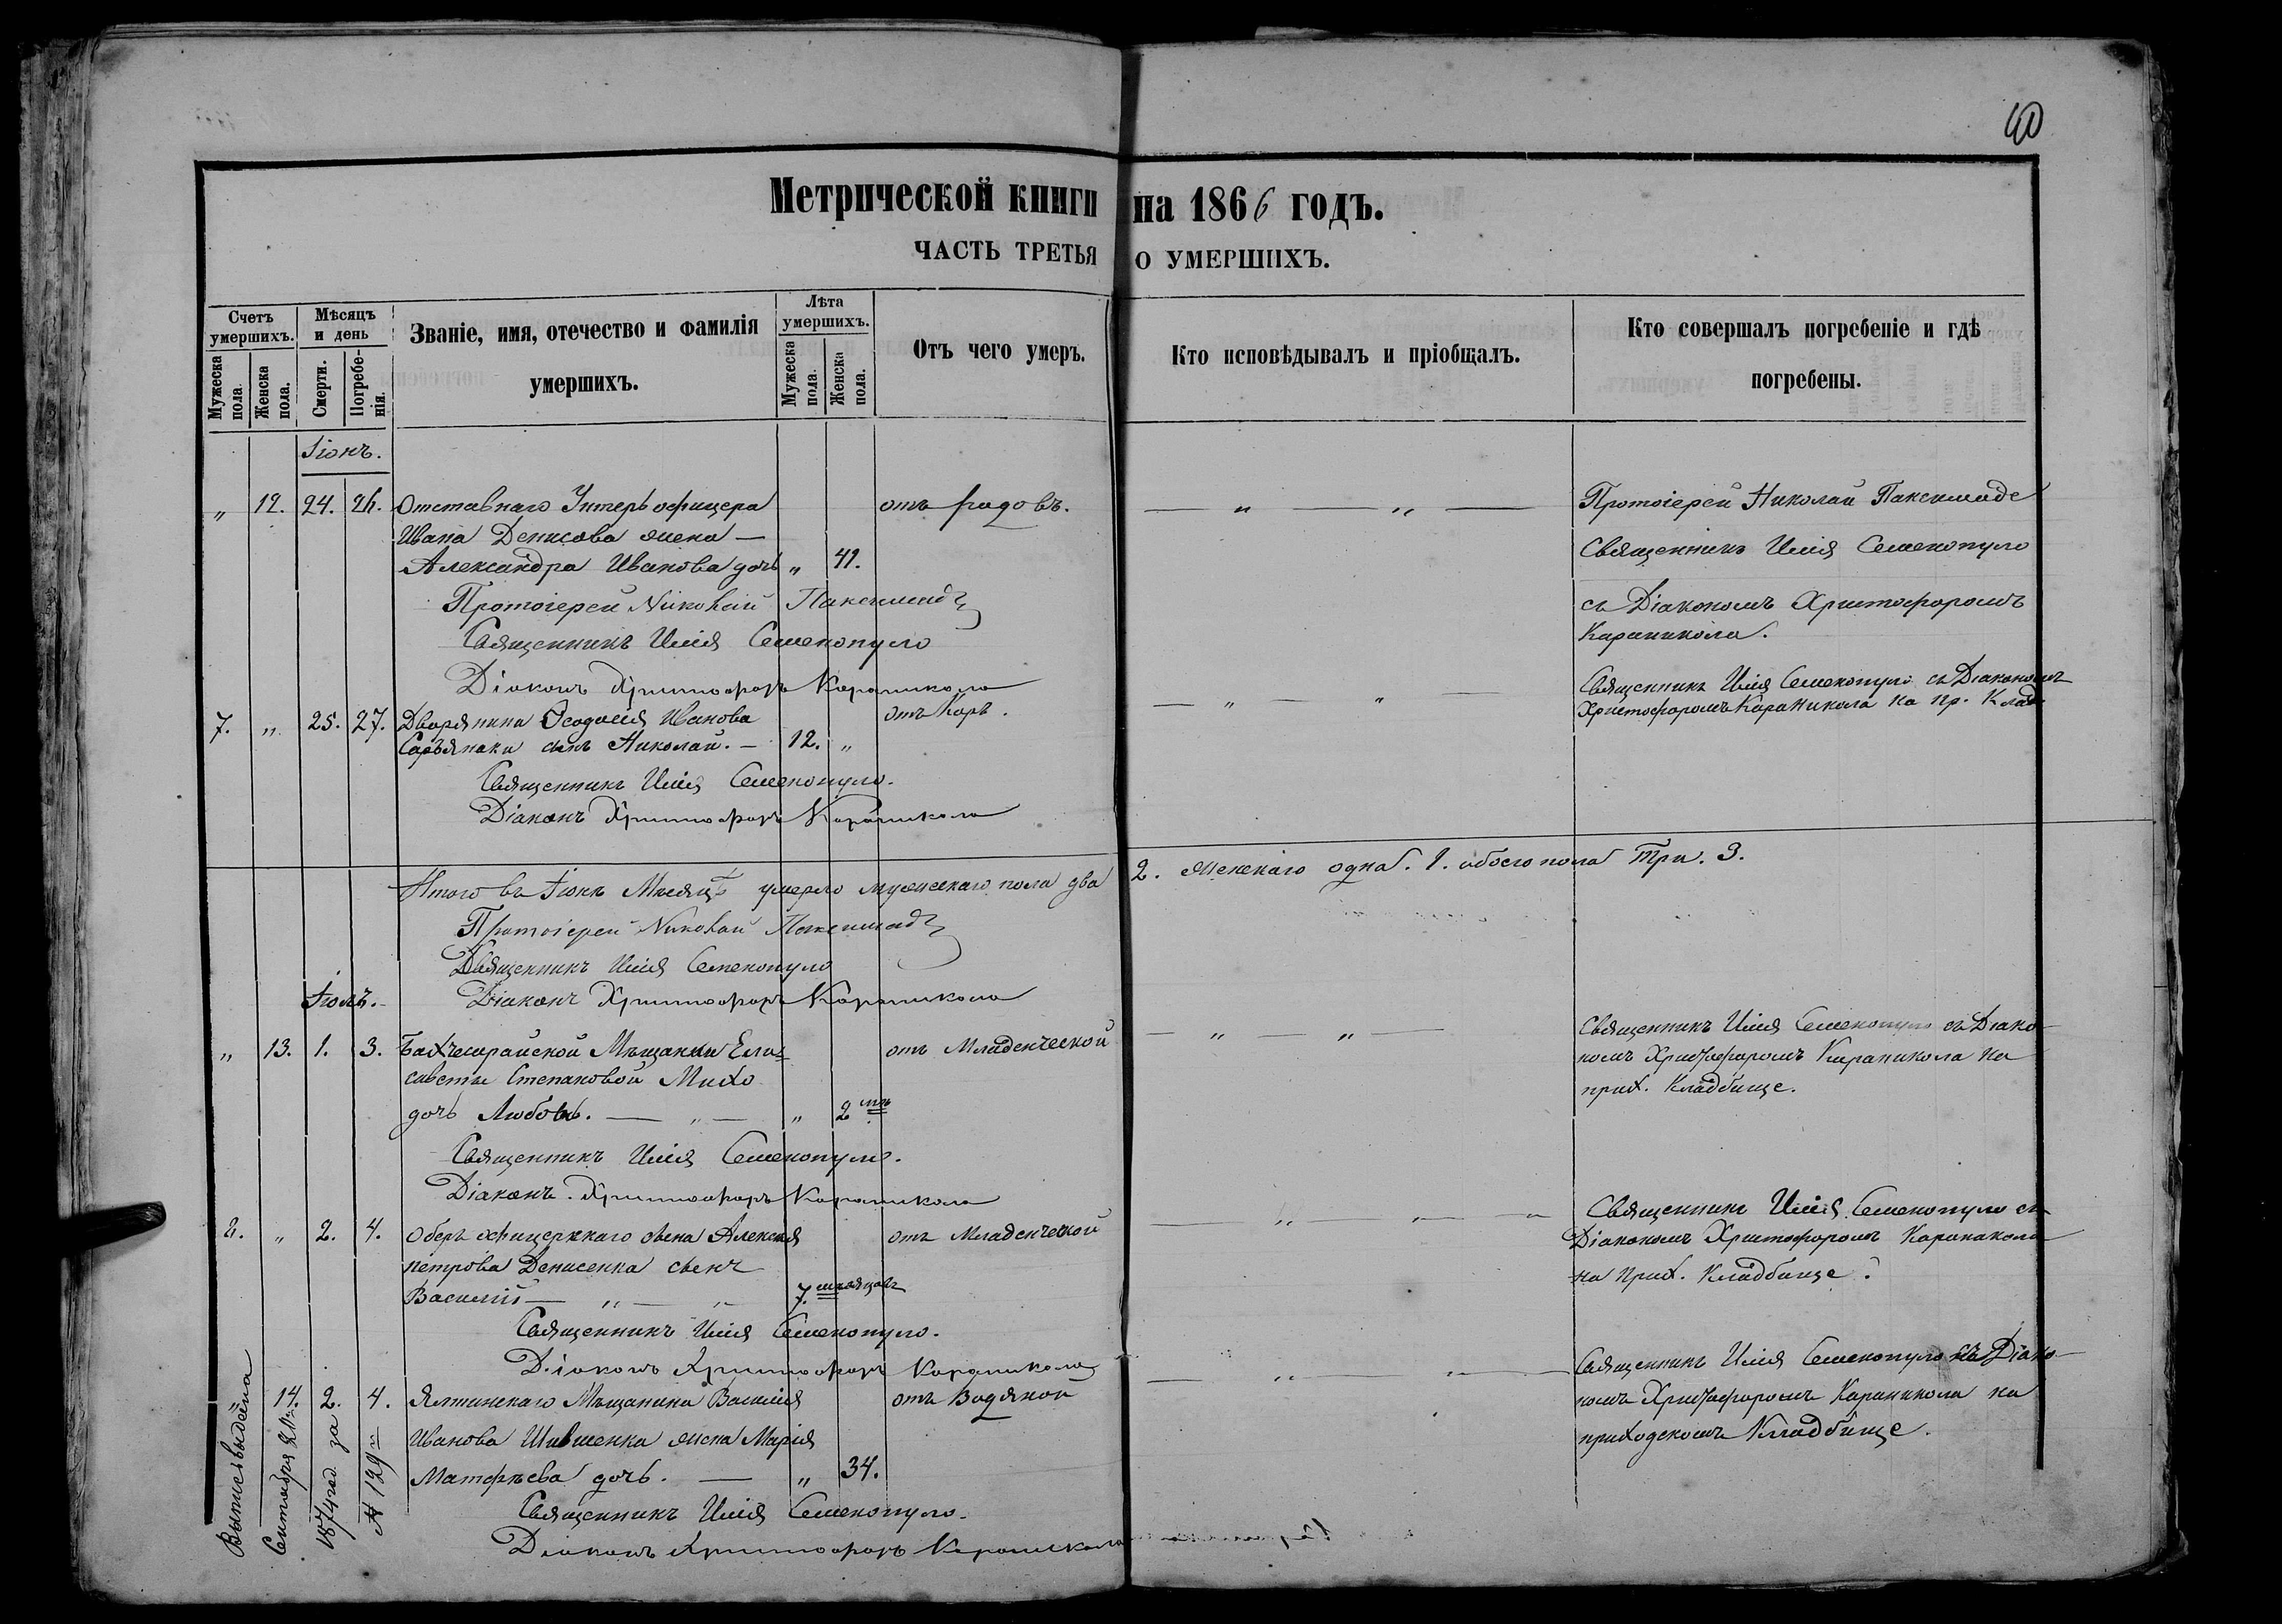 40
Метрической книги на 1866 годъ.
ЧАСТЬ ТРЕТЬЯ О УМЕРШИХЪ.
Счетъ умершихъ.
Мужеска пола.
Женска пола.
Мѣсяцъ и день
Смерти.
Погребе-
нія.
Званіе, имя, отечество и фамилія
умершихъ.
Лѣта умершихъ.
Мужеска пола.
Женска пола.
Отъ чего умеръ.
Кто исповѣдывалъ и пріобщалъ.
Кто совершалъ погребеніе и гдѣ
погребены.
Іюнь.
„ 12. 24. 26. Отставнаго Унтеръ офицера отъ родовъ. — „ — „ — Протоіерей Николай Паксимаде
Ивана Денисова жена —
Александра Иванова дочь „ 41.
Священникъ Илія Семенопуло
съ Діакономъ Христофоромъ
Караникола.
Протоіерей Николай Паксимаде
Священникъ Илія Семенопуло
Діаконъ Христофоръ Караникола
7. „ 25. 27. Дворянина Ѳеодосія Иванова отъ Корь. — „ — „ — Священникъ Илія Семенопуло съ Діакономъ
Христофоромъ Караникола на пр. Клад.
сынъ Николай. — 12. „
Священникъ Илія Семенопуло.
Діаконъ Христофоръ Караникола
Итого въ Іюнѣ Мѣсяцѣ умерло мужескаго пола два 2. женскаго одна. 1. обоего пола три. 3.
Протоіерей Николай Паксимаде
Священникъ Илія Семенопуло
Діаконъ Христофоръ Караникола
Іюль.
„ 13. 1. 3. Бахчесарайской Мѣщанки Ели- отъ Младенческой — „ — „ — Священникъ Илія Семенопуло съ Діако-
саветы Степановой Михо
номъ Христофоромъ Караникола на
дочь Любовь. — „ — „ 2 мѣ.
прих. Кладбище.
Священникъ Илія Семенопуло.
Діаконъ Христофоръ Караникола
8. „ 2. 4. Оберъ офицерскаго сына Алексѣя отъ Младенческой — „ — „ — Священникъ Илія Семенопуло съ
петрова Денисенка сынъ
Діакономъ Христофоромъ Караникола
Василій — „ — „ 7. мѣсяцовъ
на Прих. Кладбище.
Священникъ Илія Семенопуло.
Діаконъ Христофоръ Караникола
„ 14. 2. 4. Ялтинскаго Мѣщанина Василія отъ Водяной — „ — „ — Священникъ Илія Семенопуло съ Діако-
номъ Христофоромъ Караникола на
Иванова жена Марія
приходскомъ Кладбище.
Матфѣева дочь. — „ 34.
Священникъ Илія Семенопуло.
Діаконъ Христофоръ Караникола
Выпись выдана
Сентября
1874 год за
№ 129